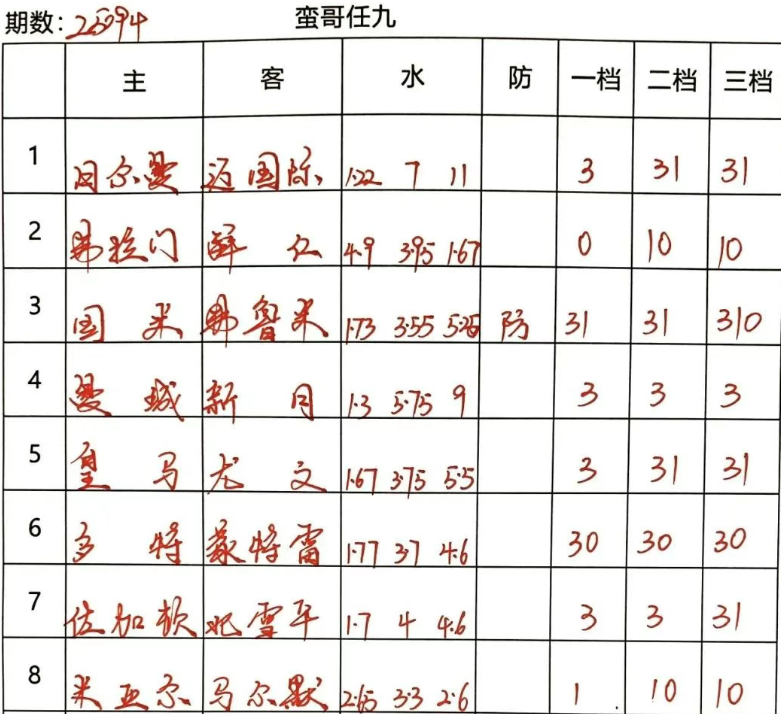 期数:25094 蛮哥任九
主 客 水 防 一档 二档 三档
1 日尔曼 迈国际 1.22 7 11 3 31 31
2 弗拉门 拜仁 4.9 3.95 1.67 0 10 10
3 国米 弗鲁米 1.73 3.55 5.25 防 31 31 310
4 曼城 新月 1.3 5.75 9 3 3 3
5 皇马 尤文 1.67 3.75 5.5 3 31 31
6 多特 蒙特雷 1.77 3.7 4.6 30 30 30
7 佐加软 北雪平 1.7 4 4.6 3 3 31
8 米亚尔 马尔默 2.65 3.3 2.6 1 10 10